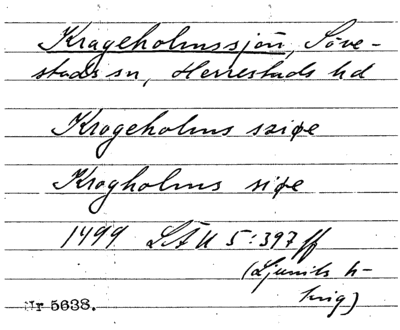 Krageholmssjön, Söve-
stads sn, Herrestads hd
Krogeholms sziøe
Krogholms siøe
1499 LÅU 5:397 ff
(Ljunits h-
Nr 5638.